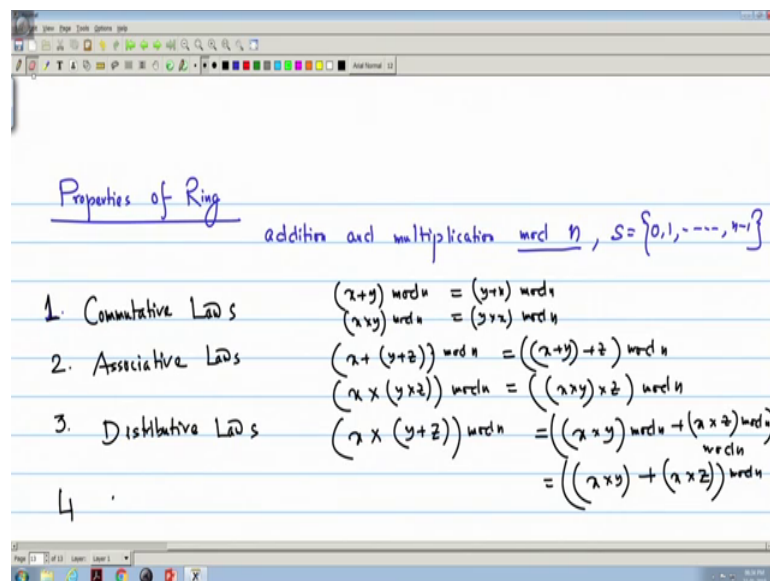 View Page Tools Options Help
Arial Normal 12
Properties of Ring
addition and multiplication mod n, S={0,1,-----,n-1}
1. Commutative Laws (x+y) mod n = (y+x) mod n
(x×y) mod n = (y×x) mod n
2. Associative Laws (x+(y+z)) mod n = ((x+y)+z) mod n
(x×(y×z)) mod n = ((x×y)×z) mod n
3. Distributive Laws (x×(y+z)) mod n = ((x×y) mod n + (x×z) mod n)
mod n
= ((x×y)+(x×z)) mod n
4.
Page 13 of 13 Layer: Layer 1